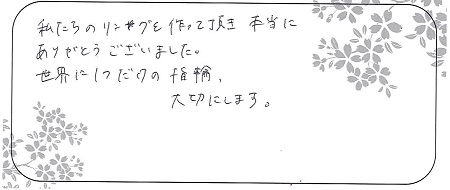 私たちのリングを作って頂き 本当に
ありがとうございました。
世界に1つだけの指輪、
大切にします。